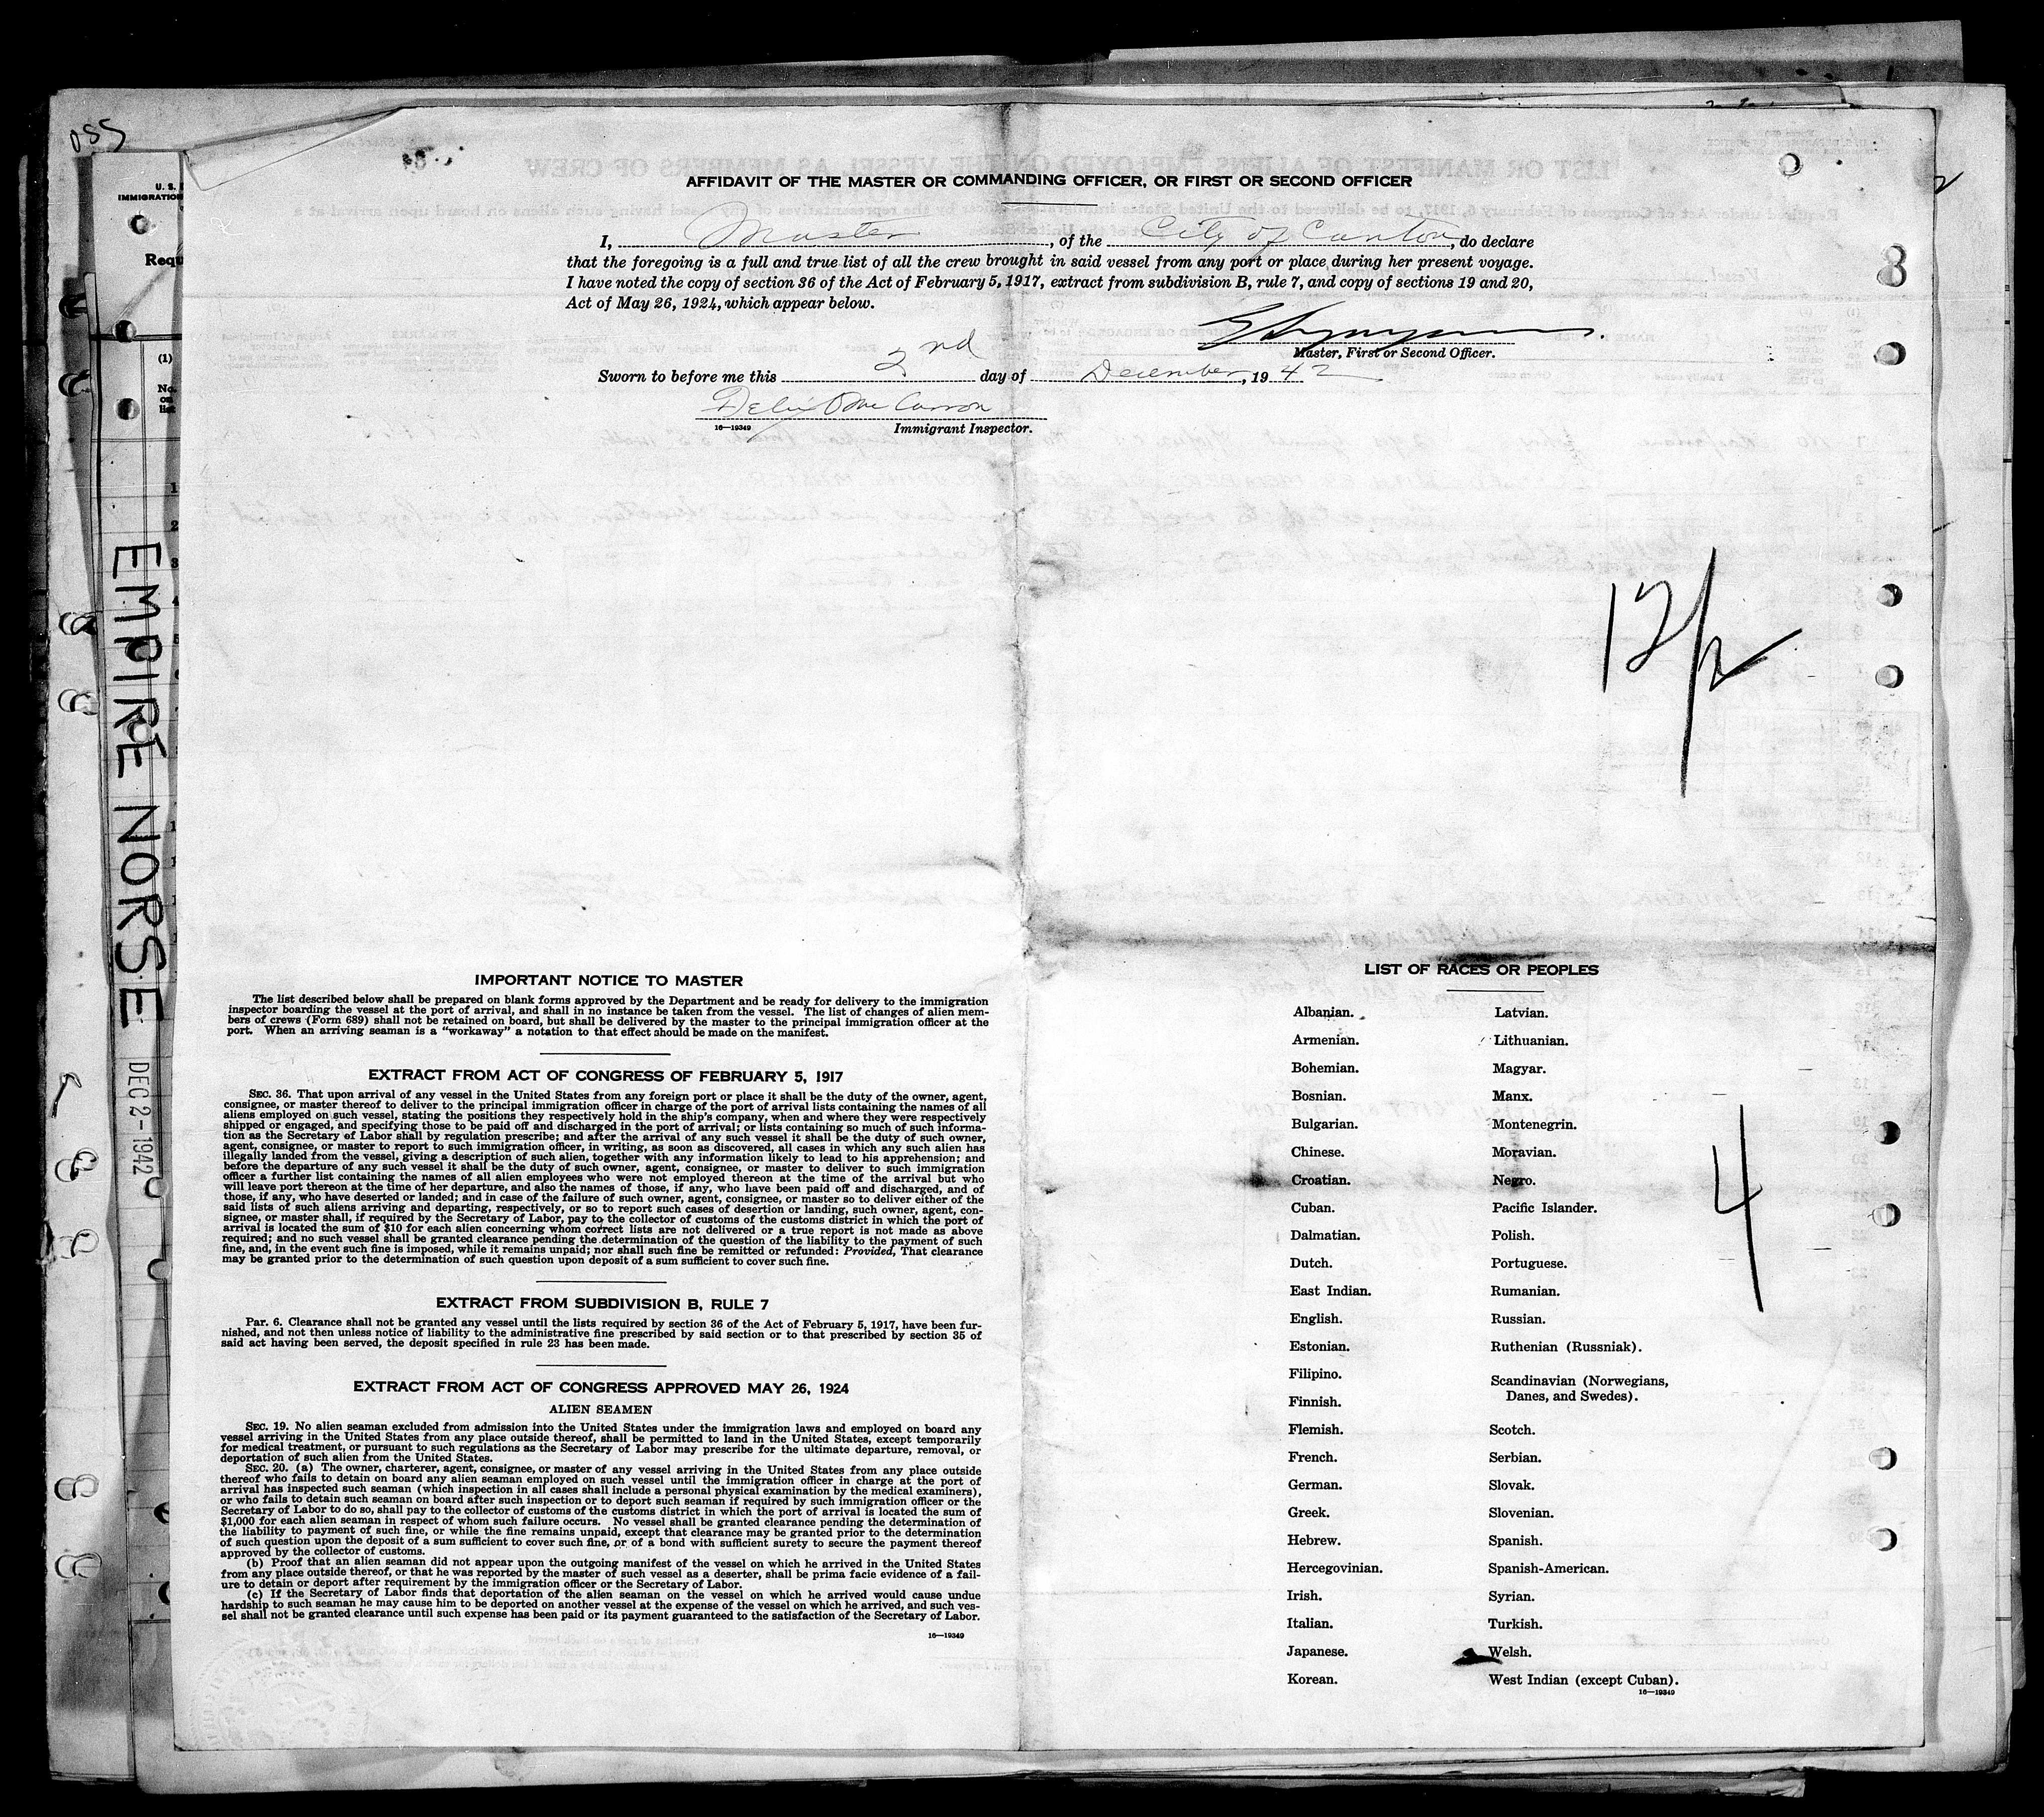 055
U. S.
IMMIGRATION
Requ
(1)
No.
on
list
EMPIRE NORSE
DEC 2-1942
AFFIDAVIT OF THE MASTER OR COMMANDING OFFICER, OR FIRST OR SECOND OFFICER
I, Master, of the City of Canton, do declare
that the foregoing is a full and true list of all the crew brought in said vessel from any port or place during her present voyage.
I have noted the copy of section 36 of the Act of February 5, 1917, extract from subdivision B, rule 7, and copy of sections 19 and 20,
Act of May 26, 1924, which appear below.
Master, First or Second Officer.
Sworn to before me this 2nd day of December, 1942
16—19349 Immigrant Inspector.
3
12/2
4
IMPORTANT NOTICE TO MASTER
The list described below shall be prepared on blank forms approved by the Department and be ready for delivery to the immigration
inspector boarding the vessel at the port of arrival, and shall in no instance be taken from the vessel. The list of changes of alien mem-
bers of crews (Form 689) shall not be retained on board, but shall be delivered by the master to the principal immigration officer at the
port. When an arriving seaman is a "workaway" a notation to that effect should be made on the manifest.
EXTRACT FROM ACT OF CONGRESS OF FEBRUARY 5, 1917
SEC. 36. That upon arrival of any vessel in the United States from any foreign port or place it shall be the duty of the owner, agent,
consignee, or master thereof to deliver to the principal immigration officer in charge of the port of arrival lists containing the names of all
aliens employed on such vessel, stating the positions they respectively hold in the ship's company, when and where they were respectively
shipped or engaged, and specifying those to be paid off and discharged in the port of arrival; or lists containing so much of such informa-
tion as the Secretary of Labor shall by regulation prescribe; and after the arrival of any such vessel it shall be the duty of such owner,
agent, consignee, or master to report to such immigration officer, in writing, as soon as discovered, all cases in which any such alien has
illegally landed from the vessel, giving a description of such alien, together with any information likely to lead to his apprehension; and
before the departure of any such vessel it shall be the duty of such owner, agent, consignee, or master to deliver to such immigration
officer a further list containing the names of all alien employees who were not employed thereon at the time of the arrival but who
will leave port thereon at the time of her departure, and also the names of those, if any, who have been paid off and discharged, and of
those, if any, who have deserted or landed; and in case of the failure of such owner, agent, consignee, or master so to deliver either of the
said lists of such aliens arriving and departing, respectively, or so to report such cases of desertion or landing, such owner, agent, con-
signee, or master shall, if required by the Secretary of Labor, pay to the collector of customs of the customs district in which the port of
arrival is located the sum of $10 for each alien concerning whom correct lists are not delivered or a true report is not made as above
required; and no such vessel shall be granted clearance pending the determination of the question of the liability to the payment of such
fine, and, in the event such fine is imposed, while it remains unpaid; nor shall such fine be remitted or refunded: Provided, That clearance
may be granted prior to the determination of such question upon deposit of a sum sufficient to cover such fine.
EXTRACT FROM SUBDIVISION B, RULE 7
Par. 6. Clearance shall not be granted any vessel until the lists required by section 36 of the Act of February 5, 1917, have been fur-
nished, and not then unless notice of liability to the administrative fine prescribed by said section or to that prescribed by section 35 of
said act having been served, the deposit specified in rule 23 has been made.
EXTRACT FROM ACT OF CONGRESS APPROVED MAY 26, 1924
ALIEN SEAMEN
SEC. 19. No alien seaman excluded from admission into the United States under the immigration laws and employed on board any
vessel arriving in the United States from any place outside thereof, shall be permitted to land in the United States, except temporarily
for medical treatment, or pursuant to such regulations as the Secretary of Labor may prescribe for the ultimate departure, removal, or
deportation of such alien from the United States.
SEC. 20. (a) The owner, charterer, agent, consignee, or master of any vessel arriving in the United States from any place outside
thereof who fails to detain on board any alien seaman employed on such vessel until the immigration officer in charge at the port of
arrival has inspected such seaman (which inspection in all cases shall include a personal physical examination by the medical examiners),
or who fails to detain such seaman on board after such inspection or to deport such seaman if required by such immigration officer or the
Secretary of Labor to do so, shall pay to the collector of customs of the customs district in which the port of arrival is located the sum of
$1,000 for each alien seaman in respect of whom such failure occurs. No vessel shall be granted clearance pending the determination of
the liability to payment of such fine, or while the fine remains unpaid, except that clearance may be granted prior to the determination
of such question upon the deposit of a sum sufficient to cover such fine, or of a bond with sufficient surety to secure the payment thereof
approved by the collector of customs.
(b) Proof that an alien seaman did not appear upon the outgoing manifest of the vessel on which he arrived in the United States
from any place outside thereof, or that he was reported by the master of such vessel as a deserter, shall be prima facie evidence of a fail-
ure to detain or deport after requirement by the immigration officer or the Secretary of Labor.
(c) If the Secretary of Labor finds that deportation of the alien seaman on the vessel on which he arrived would cause undue
hardship to such seaman he may cause him to be deported on another vessel at the expense of the vessel on which he arrived, and such ves-
sel shall not be granted clearance until such expense has been paid or its payment guaranteed to the satisfaction of the Secretary of Labor.
16—19349
LIST OF RACES OR PEOPLES
Albanian.
Armenian.
Bohemian.
Bosnian.
Bulgarian.
Chinese.
Croatian.
Cuban.
Dalmatian.
Dutch.
East Indian.
English.
Estonian.
Filipino.
Finnish.
Flemish.
French.
German.
Greek.
Hebrew.
Hercegovinian.
Irish.
Italian.
Japanese.
Korean.
Latvian.
Lithuanian.
Magyar.
Manx.
Montenegrin.
Moravian.
Negro.
Pacific Islander.
Polish.
Portuguese.
Rumanian.
Russian.
Ruthenian (Russniak).
Scandinavian (Norwegians,
Danes, and Swedes).
Scotch.
Serbian.
Slovak.
Slovenian.
Spanish.
Spanish-American.
Syrian.
Turkish.
Welsh.
West Indian (except Cuban).
16—19349